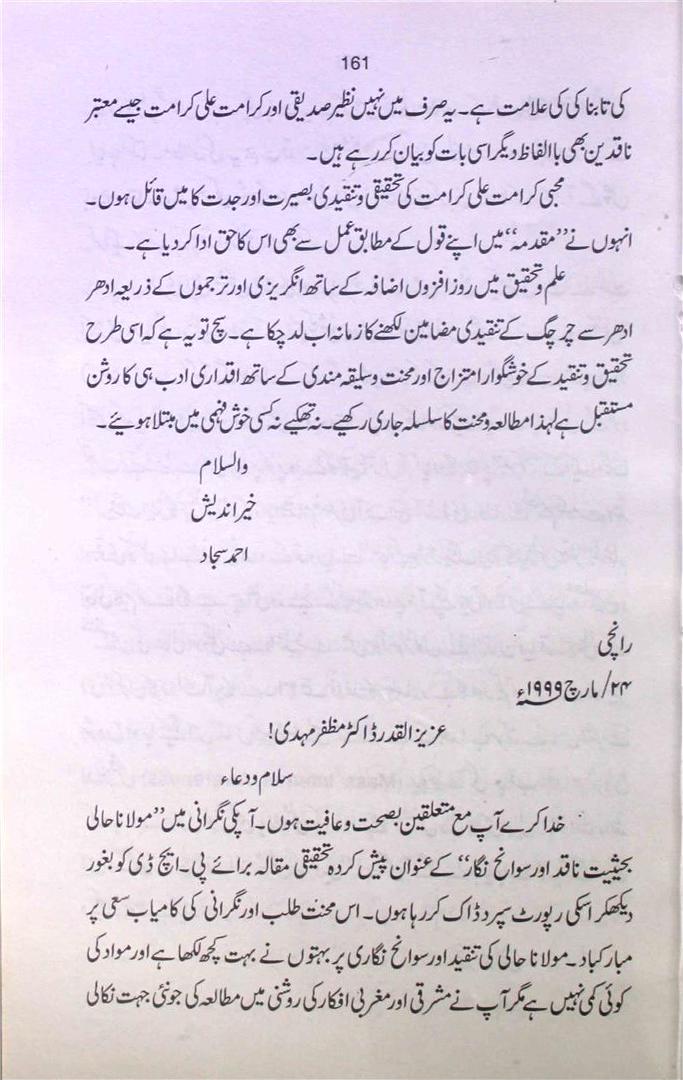 161
کی تابناکی کی علامت ہے۔ یہ صرف میں نہیں نظیر صدیقی اور کرامت علی کرامت جیسے معتبر
ناقدین بھی باالفاظ دیگر اسی بات کو بیان کر رہے ہیں۔
محبی کرامت علی کرامت کی تحقیقی و تنقیدی بصیرت اور جدت کا میں قائل ہوں۔
انہوں نے ”مقدمہ“ میں اپنے قول کے مطابق عمل سے بھی اس کا حق ادا کر دیا ہے۔
علم و تحقیق میں روز افزوں اضافہ کے ساتھ انگریزی اور ترجموں کے ذریعہ ادھر
ادھر سے چر چگ کے تنقیدی مضامین لکھنے کا زمانہ اب لد چکا ہے۔ سچ تو یہ ہے کہ اسی طرح
تحقیق و تنقید کے خوشگوار امتزاج اور محنت و سلیقہ مندی کے ساتھ اقداری ادب ہی کا روشن
مستقبل ہے لہذا مطالعہ و محنت کا سلسلہ جاری رکھیے۔ نہ تھکیے نہ کسی خوش فہمی میں مبتلا ہوئیے۔
والسلام
خیر اندیش
احمد سجاد
رانچی
۲۴/ مارچ ۱۹۹۹ء
عزیز القدر ڈاکٹر مظفر مہدی!
سلام و دعاء
خدا کرے آپ مع متعلقین بصحت و عافیت ہوں۔ آپکی نگرانی میں ”مولانا حالی
بحیثیت ناقد اور سوانح نگار“ کے عنوان پیش کردہ تحقیقی مقالہ برائے پی۔ ایچ ڈی کو بغور
دیکھکر اسکی رپورٹ سپرد ڈاک کر رہا ہوں۔ اس محنت طلب اور نگرانی کی کامیاب سعی پر
مبارکباد۔ مولانا حالی کی تنقید اور سوانح نگاری پر بہتوں نے بہت کچھ لکھا ہے اور مواد کی
کوئی کمی نہیں ہے مگر آپ نے مشرقی اور مغربی افکار کی روشنی میں مطالعہ کی جو نئی جہت نکالی